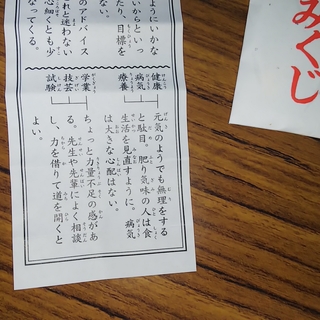 みくじ
ようにいかな
いからといっ
たり、目標を
ない。
のアドバイス
れと迷わない
心細くとも少
なってくる。
健康
病気
療養
元気のようでも無理をする
と駄目。肥り気味の人は食
生活を見直すように。病気
は大きな心配はない。
学業
技芸
試験
ちょっと力量不足の感があ
る。先生や先輩によく相談
し、力を借りて道を開くと
よい。